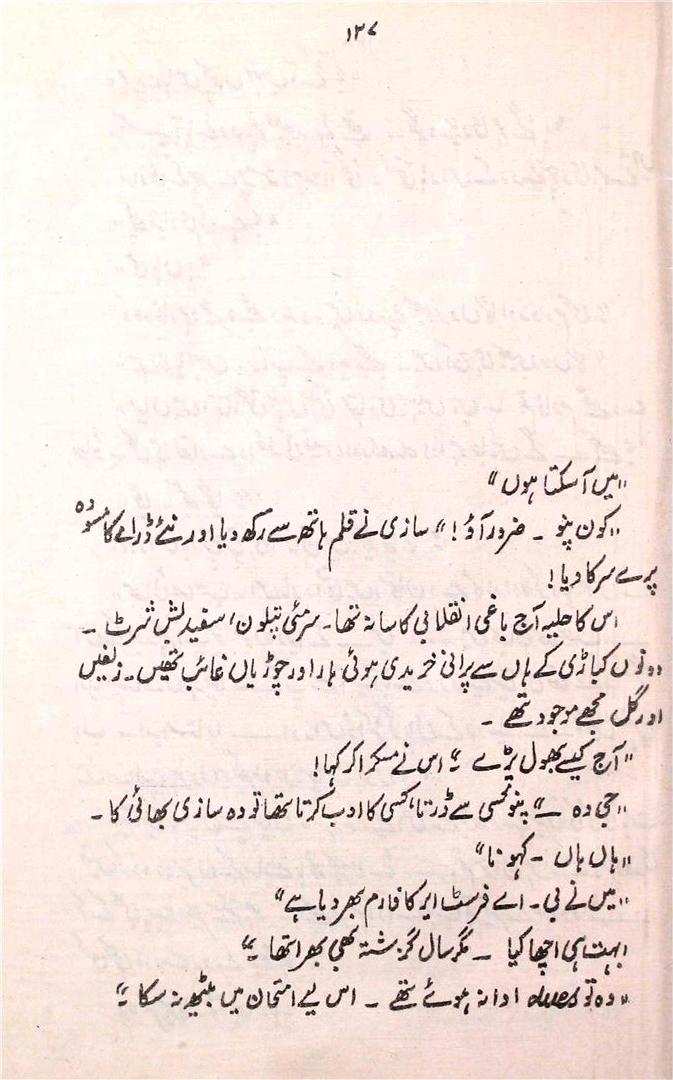 ۱۳۷
"میں آ سکتا ہوں"
"کون پنو ۔ ضرور آؤ!" سازی نے قلم ہاتھ سے رکھ دیا اور نئے ڈرامے کا مسودہ
پرے سرکا دیا!
اس کا حلیہ آج باغی انقلابی کا سا نہ تھا۔ سرمئی پتلون، سفید بش شرٹ ۔
دونوں کباڑی کے ہاں سے پرانی خریدی ہوئی ہار اور چوڑیاں غائب تھیں۔ زلفیں
اور گل مچھے موجود تھے ۔
"آج کیسے بھول پڑے ؟" اس نے مسکرا کر کہا!
"جی وہ ــ" پنو کسی سے ڈرتا، کسی کا ادب کرتا تھا تو وہ سازی بھائی کا ۔
"ہاں ہاں ۔ کہو نا"
"میں نے بی ۔ اے فرسٹ ایر کا فارم بھر دیا ہے"
بہت ہی اچھا کیا ۔ مگر سال گزشتہ بھی بھرا تھا ؟"
"وہ تو dues ادا نہ ہوئے تھے ۔ اس لیے امتحان میں بیٹھ نہ سکا ؟"